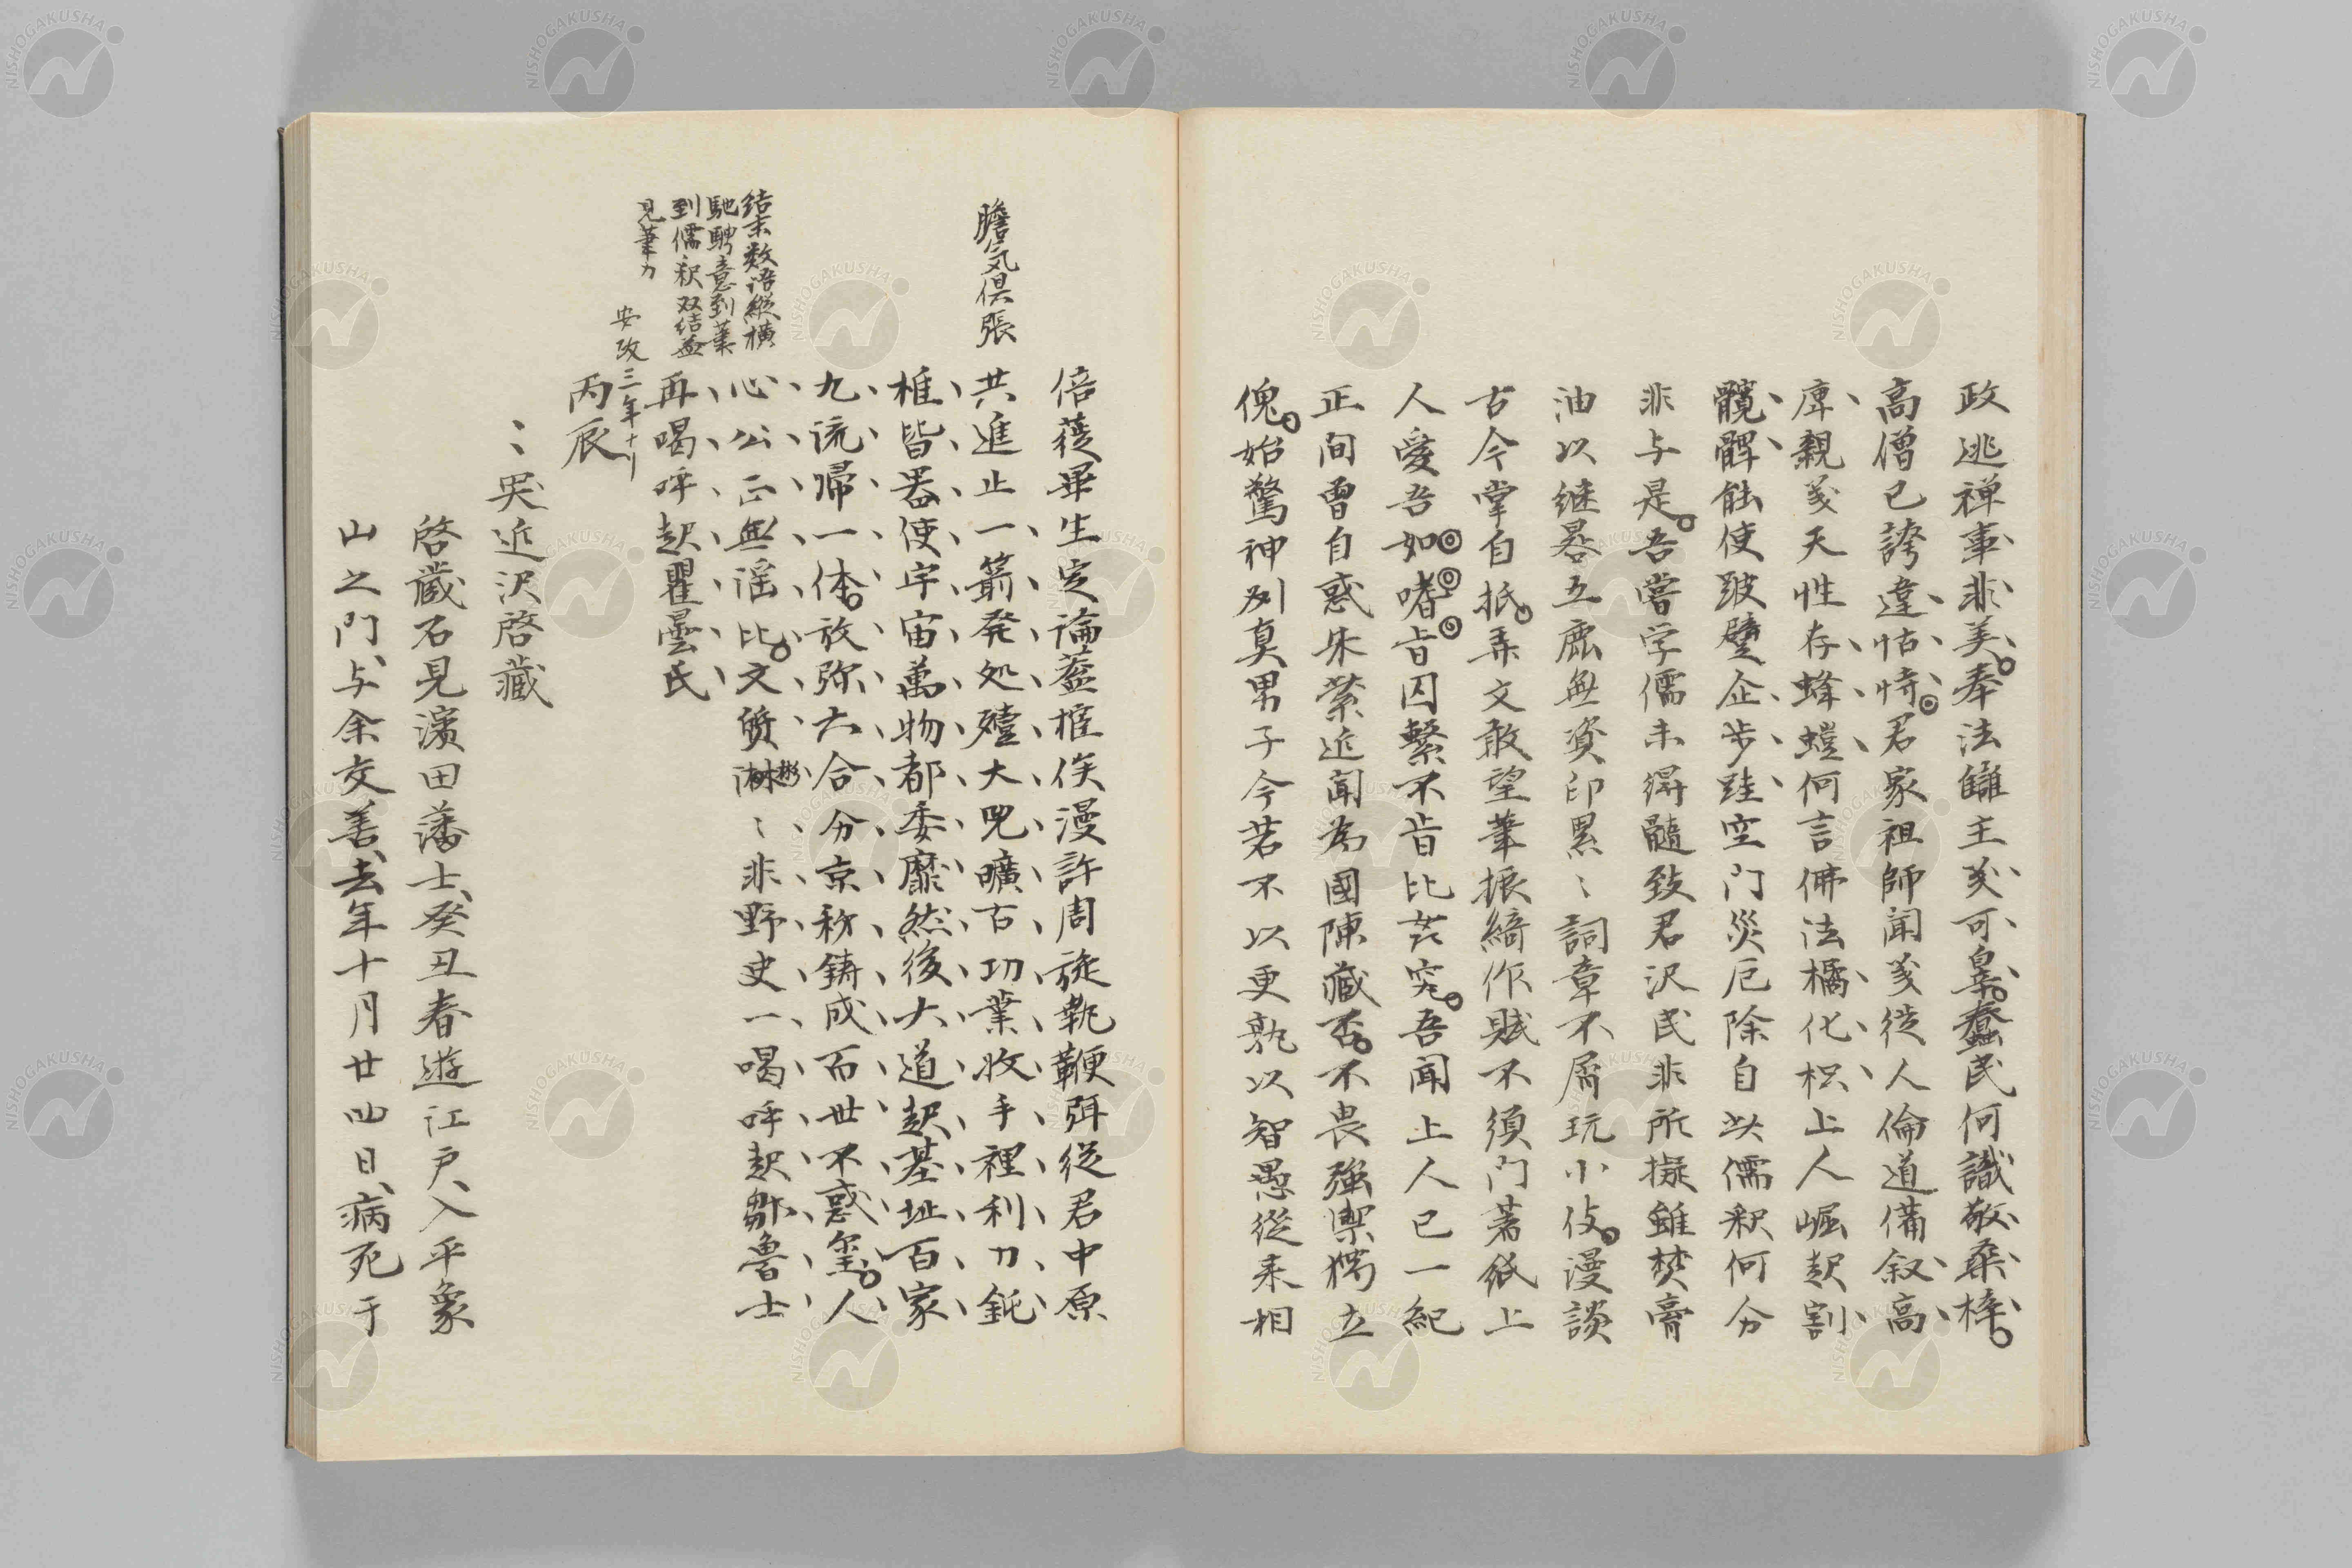 政逃禅事非美奉法讎主义可辠蠢民何識敬桑梓
高僧已誇違怙恃君家祖師聞义徒人倫道備叙高
厚親义天性存蜂螘何言佛法橘化枳上人崛起割
髖髀能使跛躄企步跬空門災厄除自此儒釈何分
非与是吾嘗学儒未得髓致君沢民非所擬雖焚膏
油以継晷五鹿無資印累〻詞章不屑玩小伎漫談
古今掌自抵弄文敢望筆振綺作賦不須門著紙上
人愛吾如嗜㫖囚繋不㫖比茫究吾聞上人已一紀
正間曽自惑朱紫近聞為國陳藏否不畏強禦獨立
傀始驚神列真男子今若不以更孰以智愚從来相
倍蓰畢生定論蓋棺俟漫許周旋執鞭弭從君中原
膽気倶張
共進止一箭発処殪大兕曠古功業收手裡利刀鈍
椎皆器使宇宙萬物都委靡然後大道起基址百家
九流帰一体放弥六合分京秭鋳成百世不惑璽人
結末数语縦横
馳騁意到筆
到儒釈双结益
見筆力
心公正無謡比文質彬〻非野史一喝呼起鄒魯士
再喝呼起瞿曇氏
安政三年十月
丙辰
〻哭近沢啓蔵
啓蔵石見濱田藩士癸丑春遊江戸入平象
山之門与余交善去年十月廿四日病死于